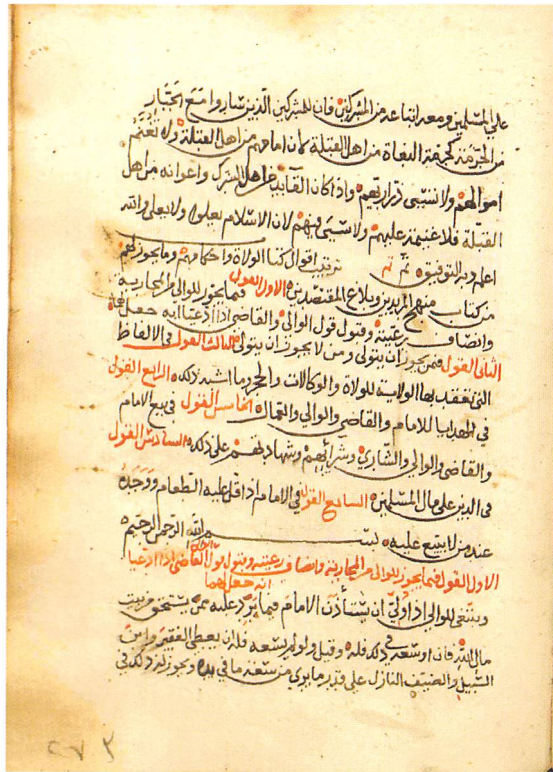 على المسلمين ومعه اتباعه من المشركين فان للمشركين الذين ساروا مع الجبار
من الحرمة كحرمة البغاة من اهل القبلة لان امامهم من اهل القبلة ولا تغنم
اموالهم ولا تسبى ذراريهم واذا كان القايد من اهل الشرك واعوانه من اهل
القبلة فلا غنيمة عليهم ولا سبي فيهم لان الاسلام يعلوا ولا يعلى والله
اعلم وبه التوفيق تم ترتيب اقوال كتاب الولاة واحكامهم وما يجوز لهم
من كتاب منهج المريدين وبلاغ المقتصدين الاول القول فيما يجوز للوالي من المحاربة
وانصاف رعيته وقبول قول الوالي والقاضي اذا ادعيا انه جعل لهما
الثاني القول فمن يجوز ان يتولى ومن لا يجوز ان يتولى الثالث القول في الالفاظ
التي تنعقد بها الولاية للولاة والوكالات والحجر وما اشبه ذلك الرابع القول
في الهدايا للامام والقاضي والوالي والعمال الخامس القول في بيع الامام
والقاضي والوالي والشاري وشرائهم وشهادتهم على ذلك السادس القول
في الدين على مال المسلمين السابع القول في الامام اذا قل عليه الطعام ووجده
عند من لا يبيع عليه بسم الله الرحمن الرحيم
الاول القول فيما يجوز للوالي من المحاربة وانصاف رعيته وقبول قول الوالي والقاضي اذا ادعيا
انه جعل لهما
وينبغي للوالي اذا ولي ان يستأذن الامام فيما يرد عليه ممن يستحق من بيت
مال الله فان اوسعه في ذلك فله وقيل ولو لم يسعه فله ان يعطي الفقير وابن
السبيل والضيف النازل على قدر ما يرى من سعة ما في يده ويجوز له ذلك في
٢٧٣